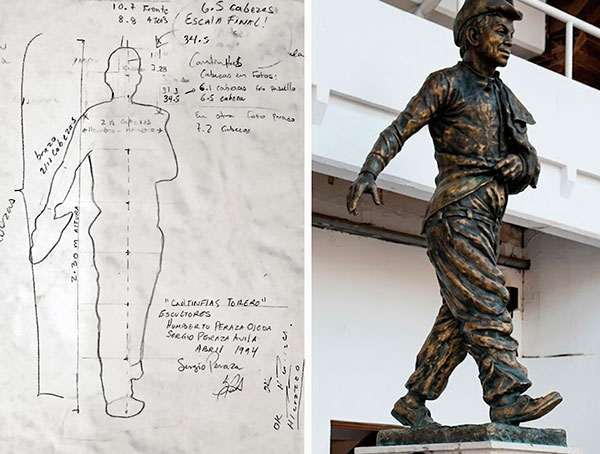 10.7 Frente
8.8 Atrás
6.5 cabezas
ESCALA FINAL!
34.5
Cantinflas
Cabezas en Fotos:
6.1 cabezas
6.5 cabeza
34.5
En otra foto parece
7.2 cabezas
2 1/4 cabezas
Hombro - Hombro
brazo
2.30 M ALTURA
"CANTINFLAS TORERO"
ESCULTORES
HUMBERTO PERAZA OJEDA
SERGIO PERAZA AVILA
ABRIL 1994
Sergio Peraza
OK
OK